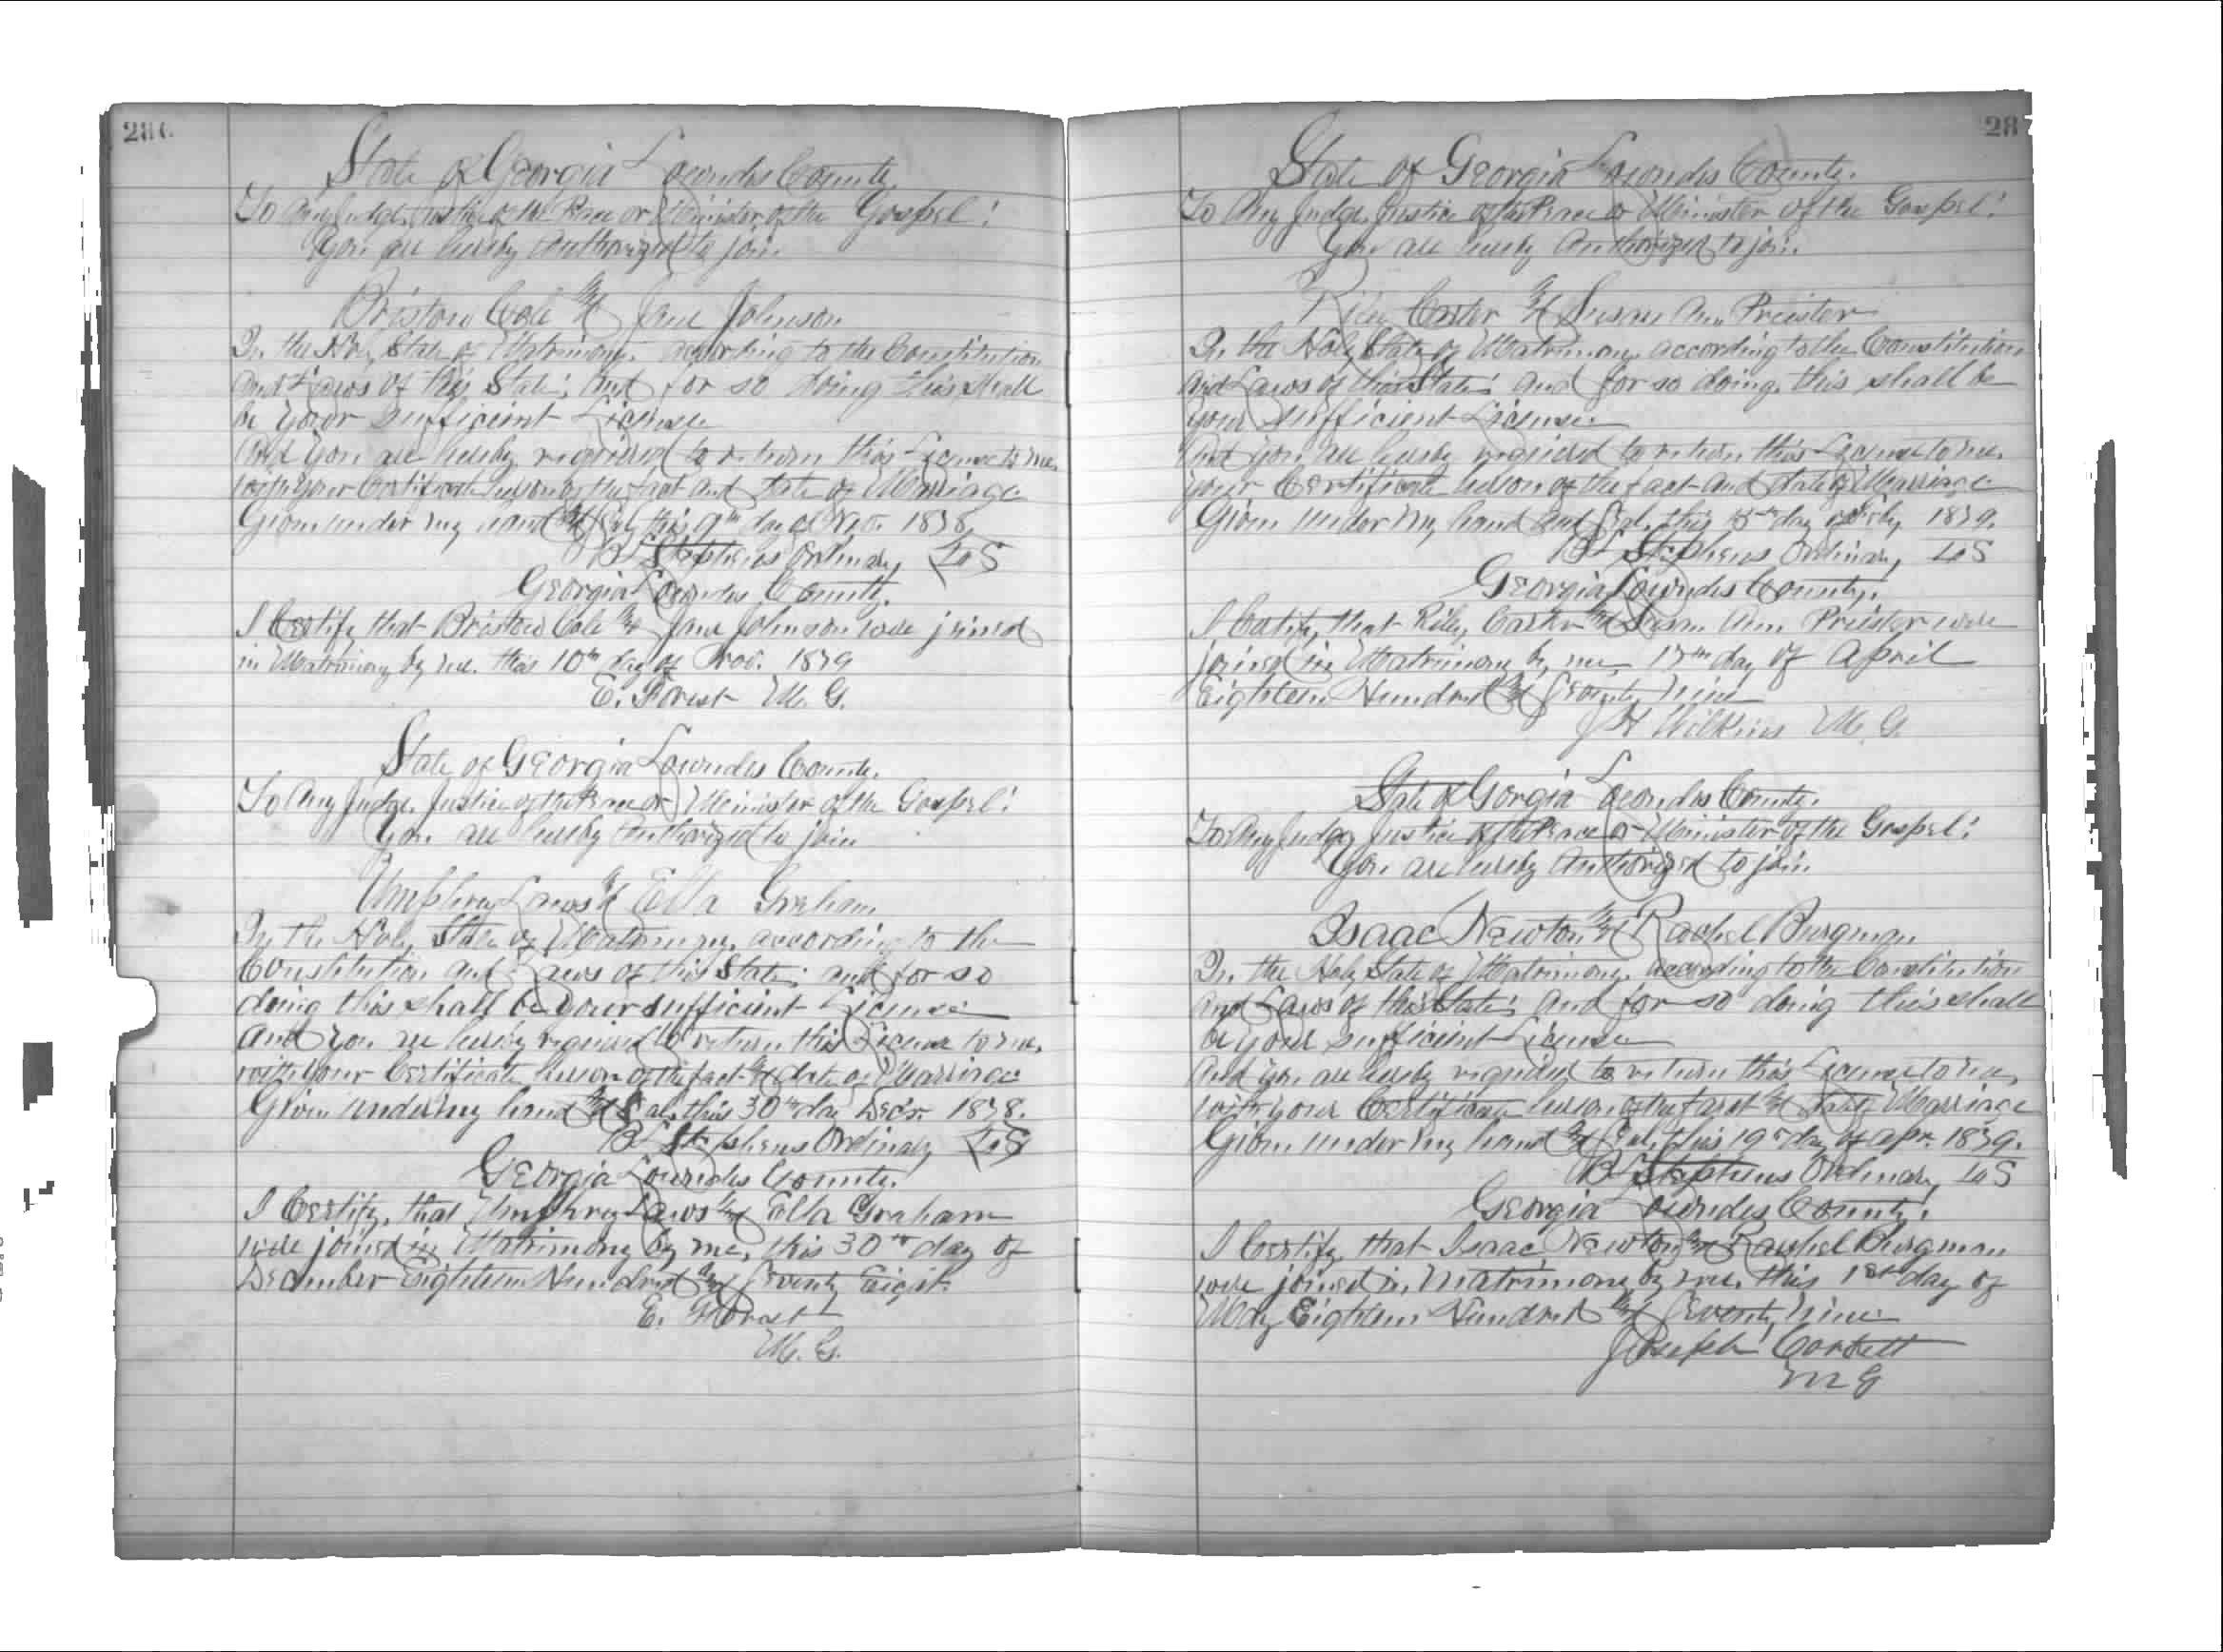 286
State of Georgia Lowndes County.
To Any Judge, Justice of the Peace or Minister of the Gospel!
You are hereby Authorized to join
Bristow Cole and Jane Johnson
In the Holy State of Matrimony, according to the Constitution
and Laws of this State; and for so doing this shall
be your sufficient License
And you are hereby required to return this License to me,
with your Certificate hereon of the fact and date of Marriage
Given under my hand and Seal, this 9th day of Nov. 1878
B L Stephens Ordinary LoS
Georgia Lowndes County.
I Certify that Bristow Cole and Jane Johnson were joined
in Matrimony by me. this 10th day of Nov. 1879
E. Forest M. G.
State of Georgia Lowndes County.
To Any Judge, Justice of the Peace or Minister of the Gospel!
You are hereby Authorized to join
Umphrey Laws and Ella Graham
In the Holy State of Matrimony, according to the
Constitution and Laws of this State; and for so
doing this shall be your sufficient License
And you are hereby required to return this License to me,
with your Certificate hereon of the fact and date of Marriage
Given under my hand and Seal, this 30th day Decr. 1878.
B L Stephens Ordinary LoS
Georgia Lowndes County.
I Certify, that Umphrey Laws and Ella Graham
were joined in Matrimony by me, this 30th day of
December Eighteen Hundred and Seventy Eight
E. Forest
M. G.
287
State of Georgia Lowndes County.
To Any Judge, Justice of the Peace or Minister of the Gospel!
You are hereby Authorized to join.
Riley Carter and Susan Ann Preister
In the Holy State of Matrimony according to the Constitution
and Laws of this State; and for so doing, this shall be
your sufficient License
And you are hereby required to return this License to me.
your Certificate hereon of the fact and date of Marriage
Given under my hand and Seal, this day of 1879.
B L Stephens Ordinary LoS
Georgia Lowndes County.
I Certify, that Riley Carter and Susan Ann Preister were
joined in Matrimony by me 17th day of April
Eighteen Hundred and Seventy Nine
J H Wilkins M. G.
State of Gorgia Lowndes County.
To Any Judge Justice of the Peace or Minister of the Gospel!
You are hereby Authorized to join.
Isaac Newton and Rachel Burgman
In the Holy State of Matrimony, according to the Constitution
and Laws of this State; and for so doing this shall
be your sufficient License
And you are hereby required to return this License to me,
with your Certificate hereon of the fact and date of Marriage
Given under my hand and Seal, this 19th day of Apr. 1879.
B L Stephens Ordinary LoS
Georgia Lowndes County.
I Certify, that Isaac Newton and Rachel Burgman
were joined in Matrimony by me, this 1st day of
May Eighteen Hundred and Seventy Nine
Joseph Corbett
M G